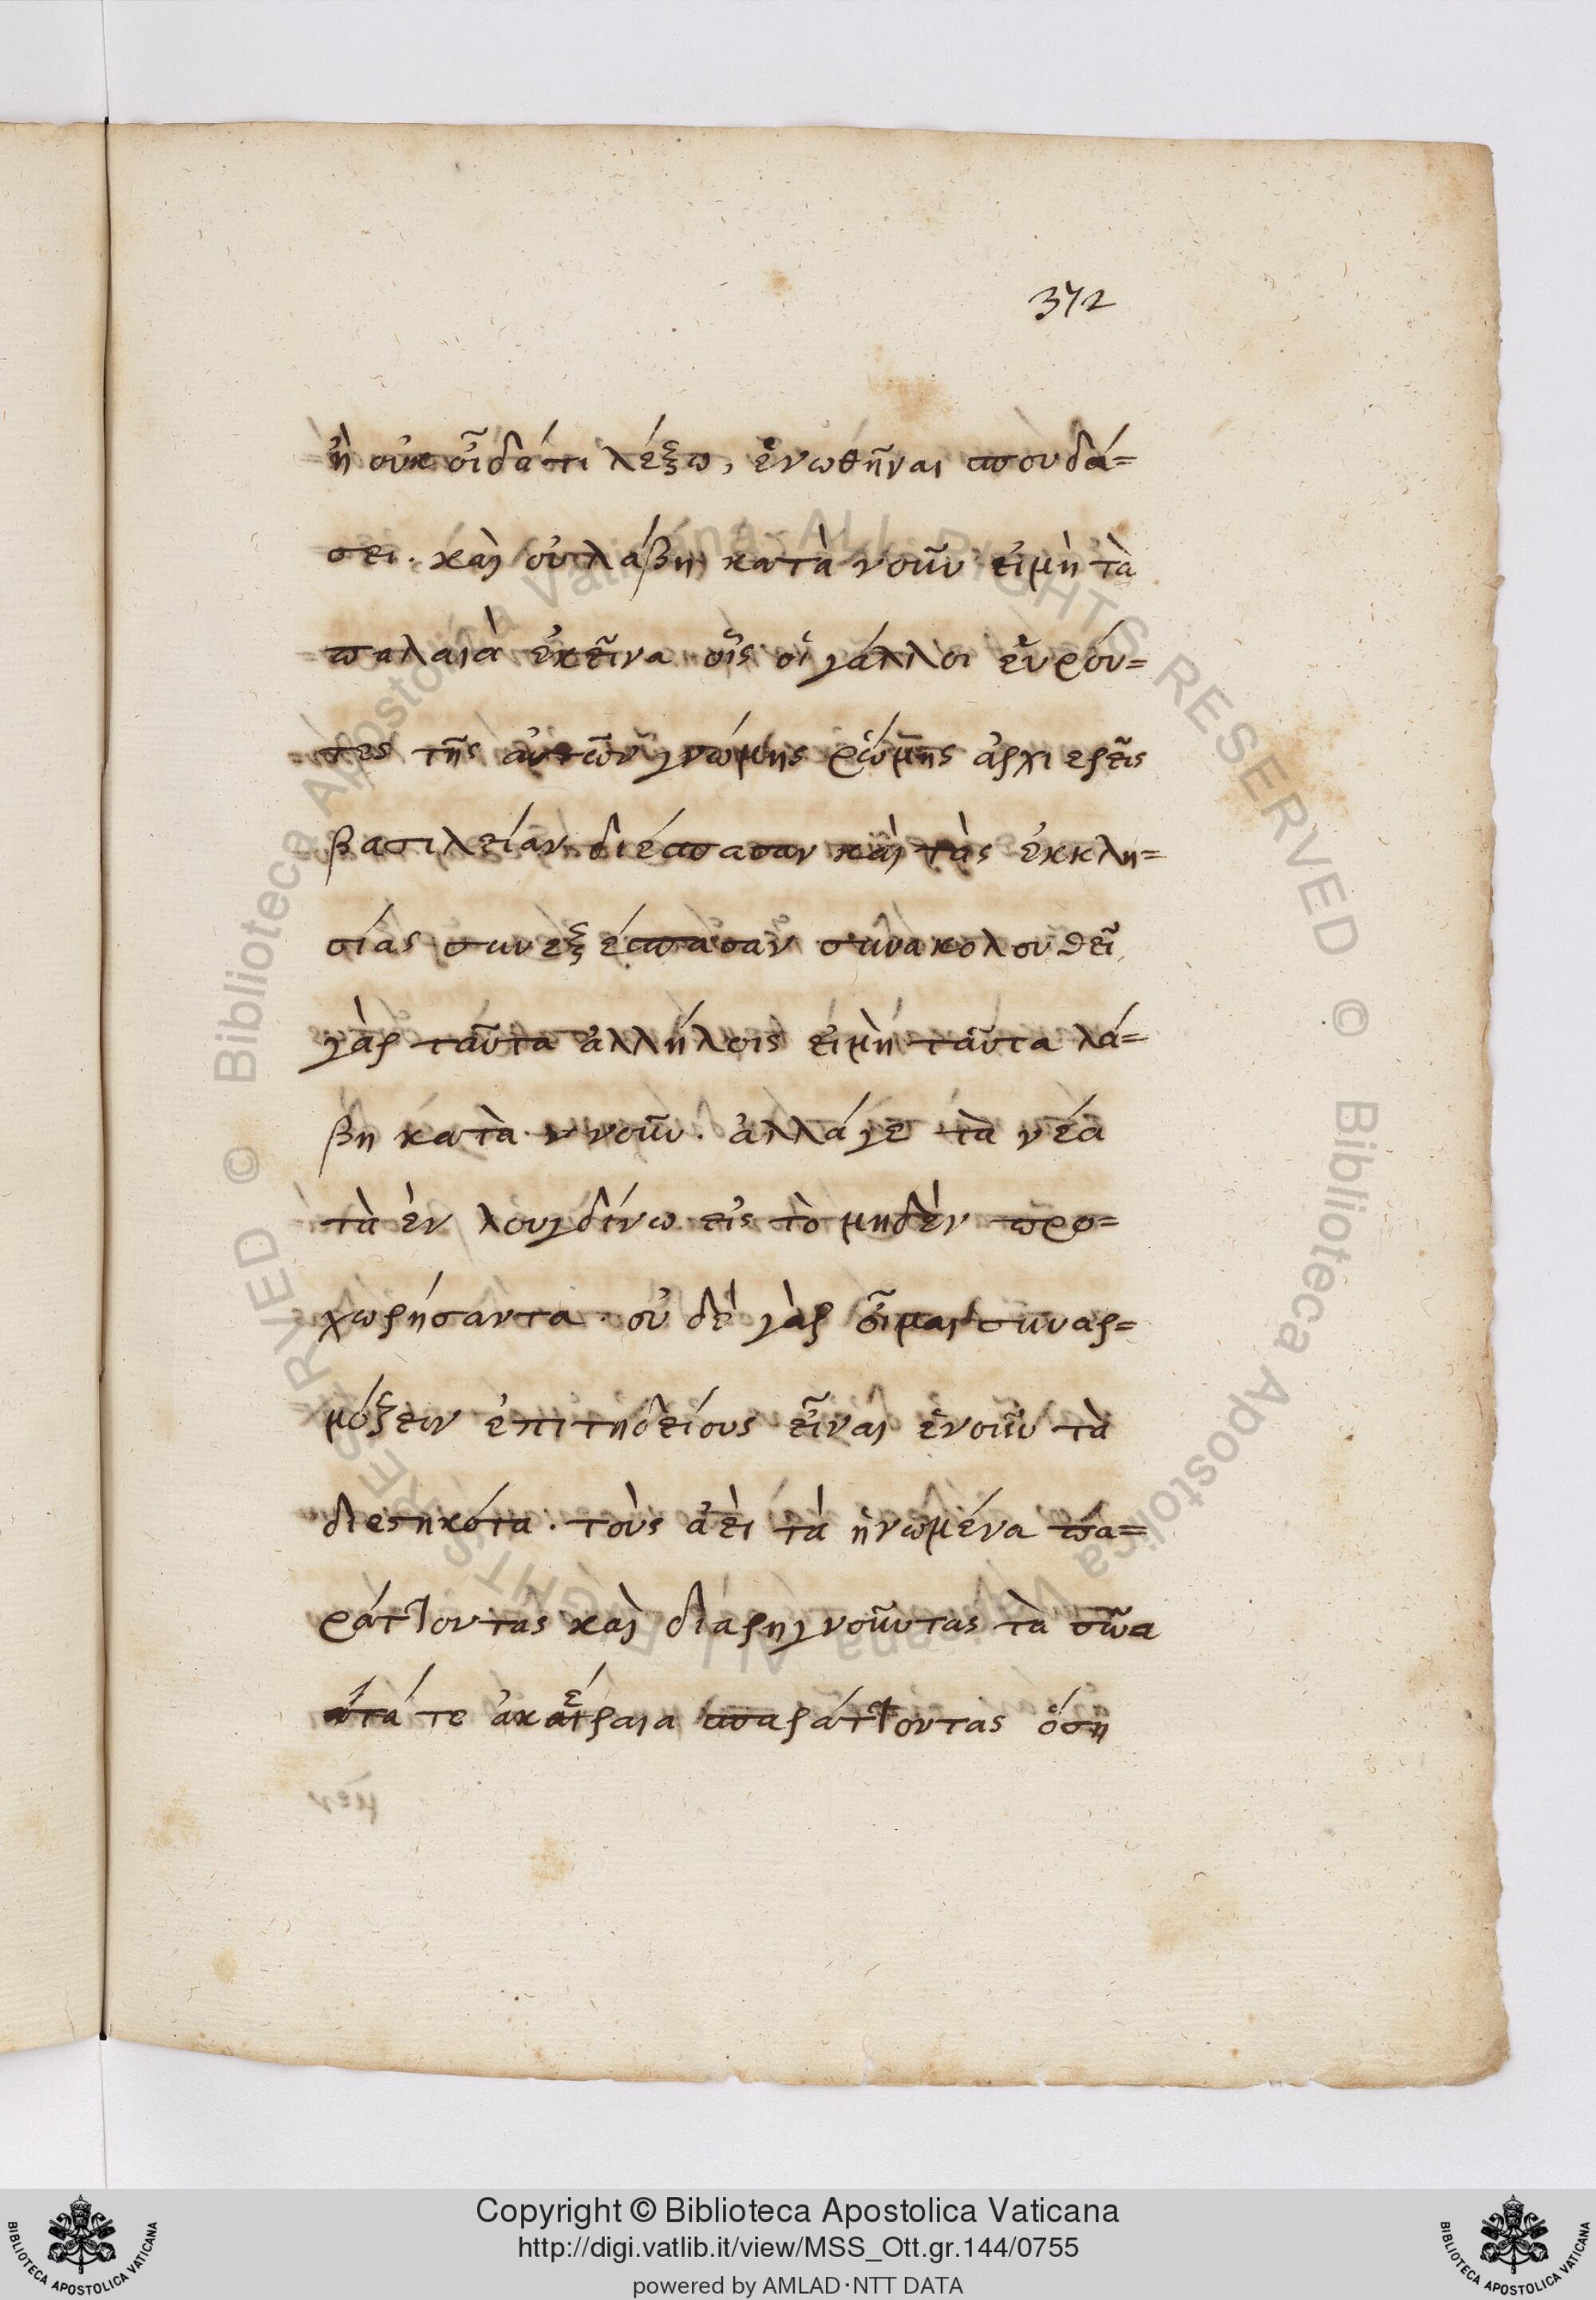 372
ἢ οὐκ οἶδά τι λέξω, ἑνωθῆναι σπουδά=
σει. καὶ οὐ λάβῃ κατὰ νοῦν εἰ μὴ τὰ
παλαιὰ ἐκεῖνα οἷς οἱ γάλλοι εὑρόν=
τες τῆς αὐτῶν γνώμης ῥώμης ἀρχιερεῖς
βασιλείαν διέσπασαν καὶ τὰς ἐκκλη=
σίας συνεξέσπασαν συνακολουθεῖ
γὰρ ταῦτα ἀλλήλοις εἰ μὴ ταῦτα λά=
βῃ κατὰ ν νοῦν. ἀλλά γε τὰ νέα
τὰ ἐν λουγδίνω εἰς τὸ μηδὲν προ=
χωρήσαντα. οὐ δὲ γὰρ οἶμαι συναρ=
μόξειν ἐπιτηδείους εἶναι ἑνοῦν τὰ
διεστηκότα. τοὺς ἀεὶ τὰ ἡνωμένα πα=
ράττοντας καὶ διαρηγνοῦντας τὰ σῶα
τά τε ἀκαίέραια σπαράττοντας ὅση
μεν
Copyright © Biblioteca Apostolica Vaticana
http://digi.vatlib.it/view/MSS_Ott.gr.144/0755
powered by AMLAD·NTT DATA
BIBLIOTECA APOSTOLICA VATICANA
BIBLIOTECA APOSTOLICA VATICANA
© Biblioteca Apostolica Vaticana ALL RIGHTS RESERVED © Biblioteca Apostolica Vaticana ALL RIGHTS RESERVED